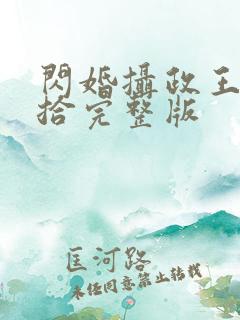 閃婚攝政王
拾完整版
匡河路
未經同意禁止轉載